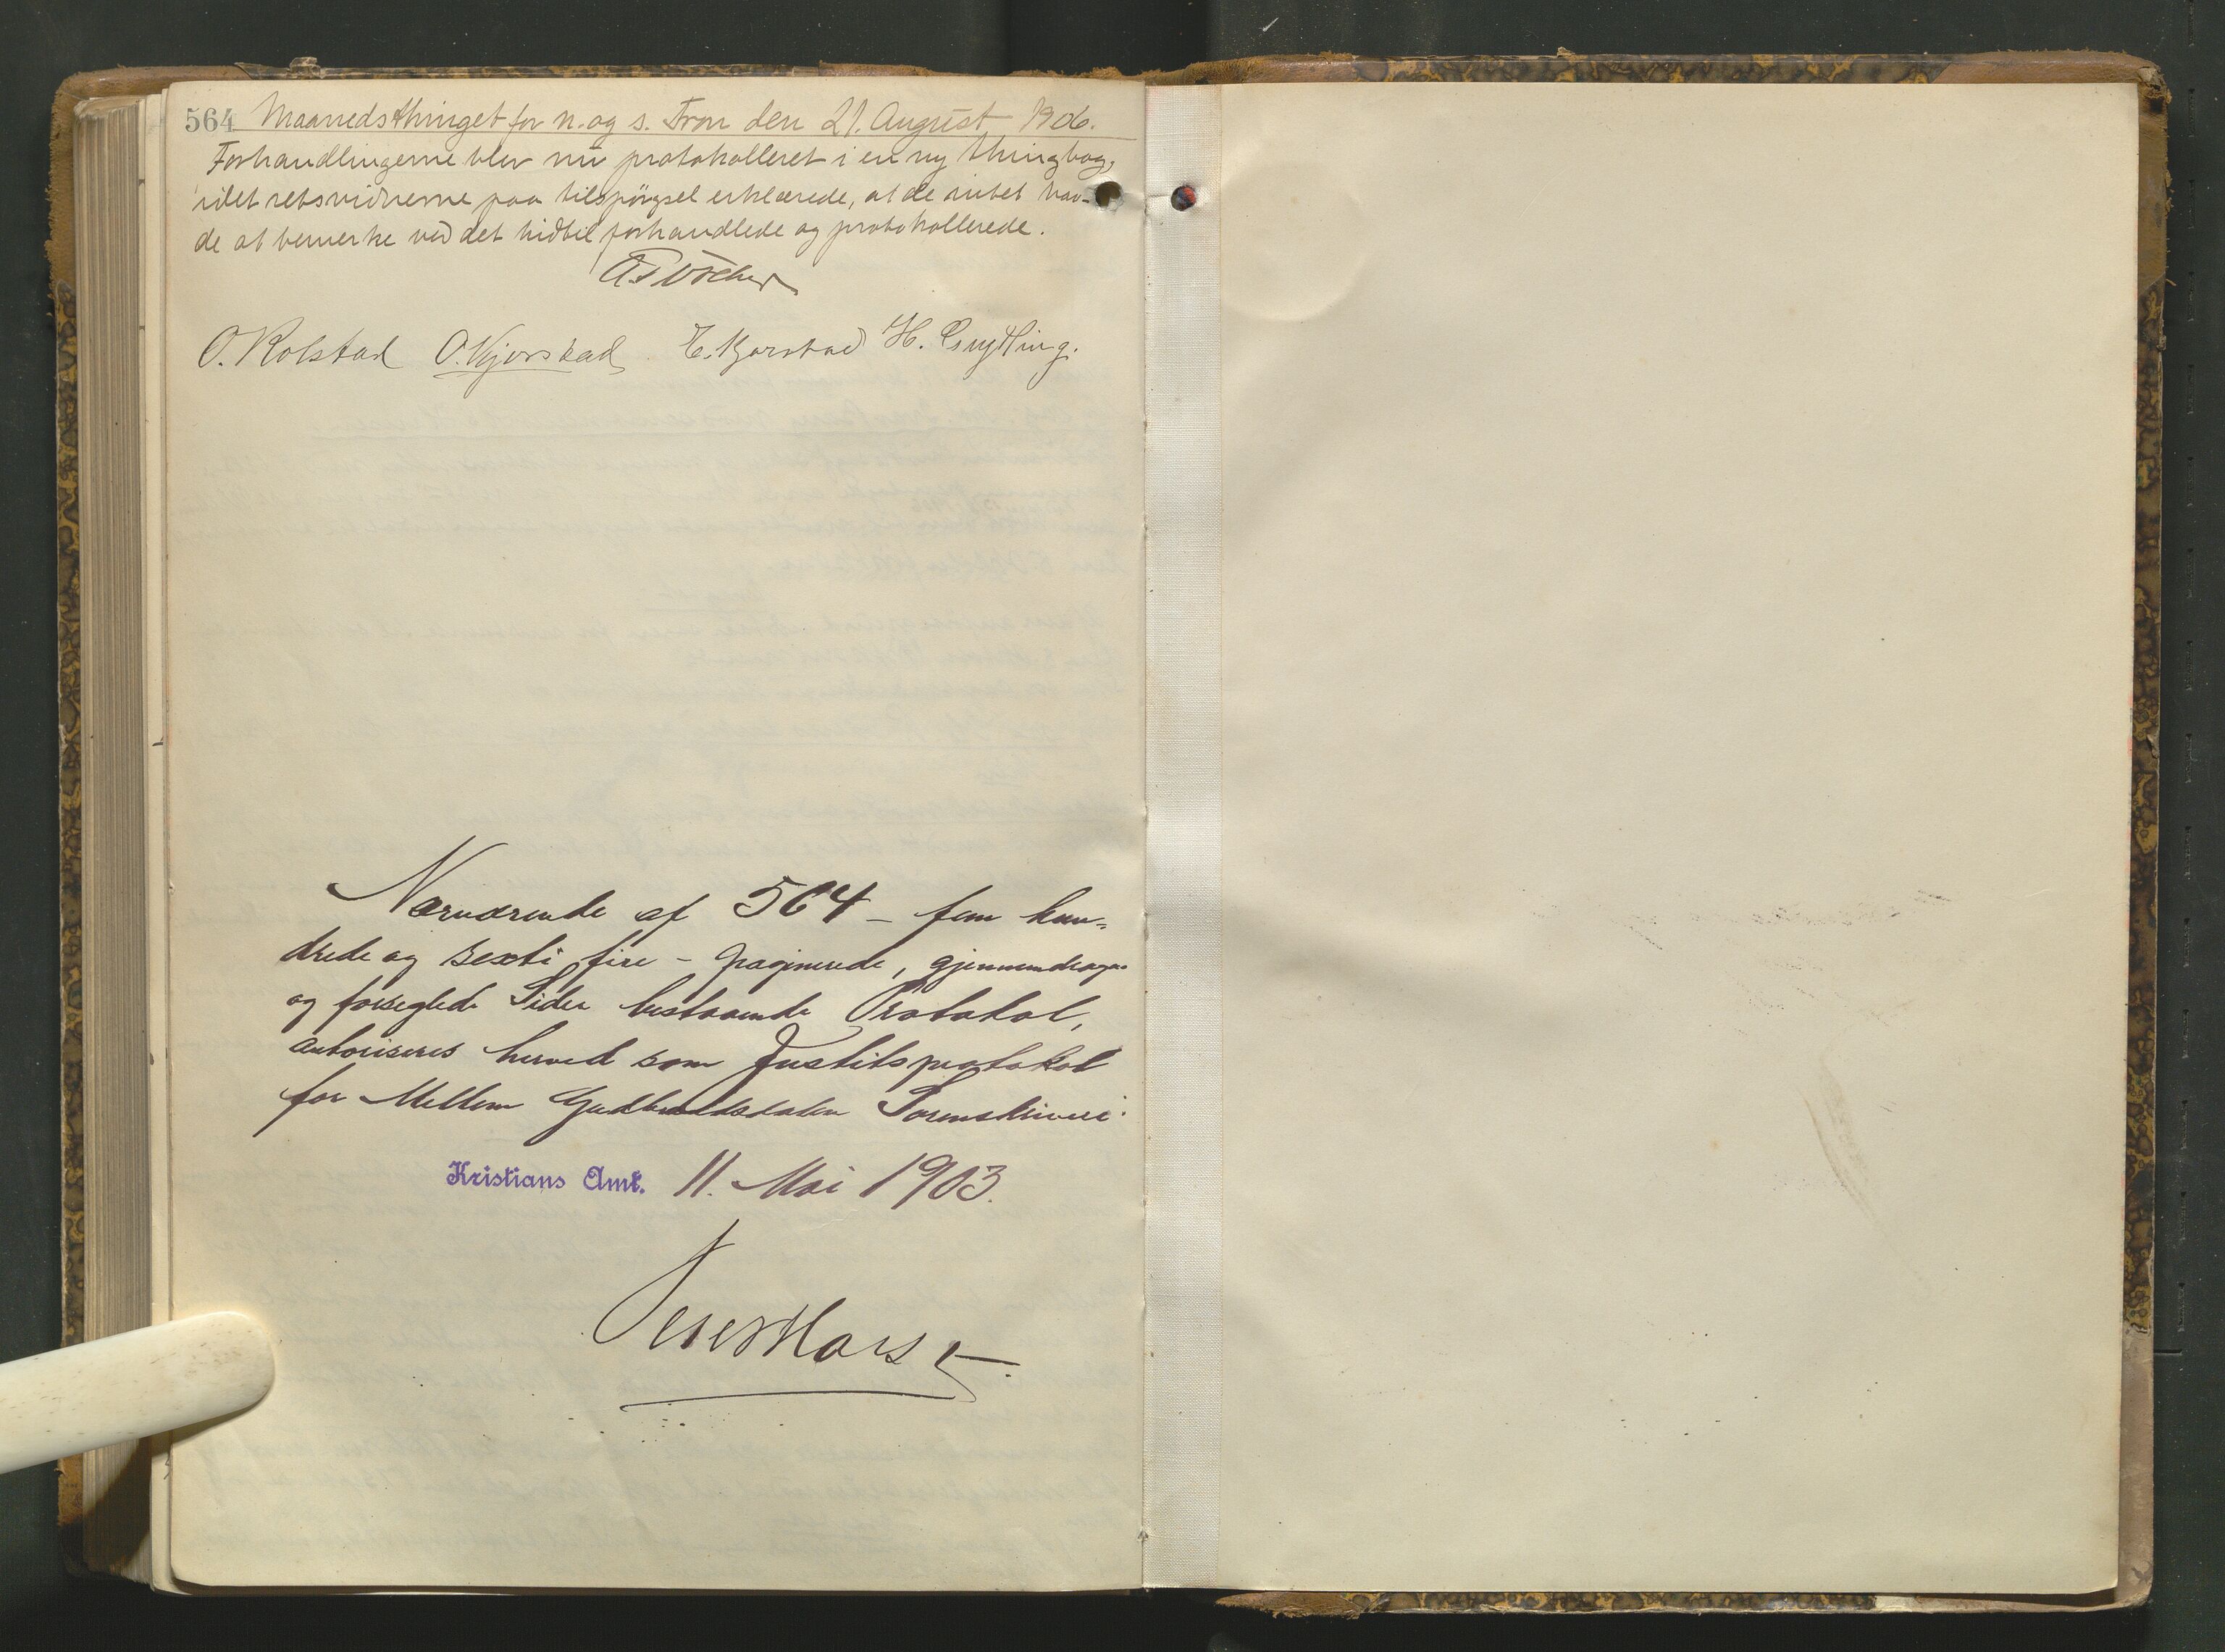 564 Maanedsthinget for n. og s. Fron den 21. August 1906.
Forhandlingerne blev nu protokolleret i en ny thingbog,
idet retsvidnerne paa tilspörgsel erklærede, at de intet hav-
de at bemerke ved det hidtil forhandlede og protokollerede.
O. Kolstad O. Kjorstad E. Kjorstad H. Grytting.
Nærværende af 564 – fem hun-
drede og sexti fire – paginerede, gjennemdragne
og forseglede Sider bestaaende Protokol,
autoriseres herved som Justitsprotokol
for Mellem Gudbrandsdalen Sorenskriveri.
Kristians Amt. 11. Mai 1903.